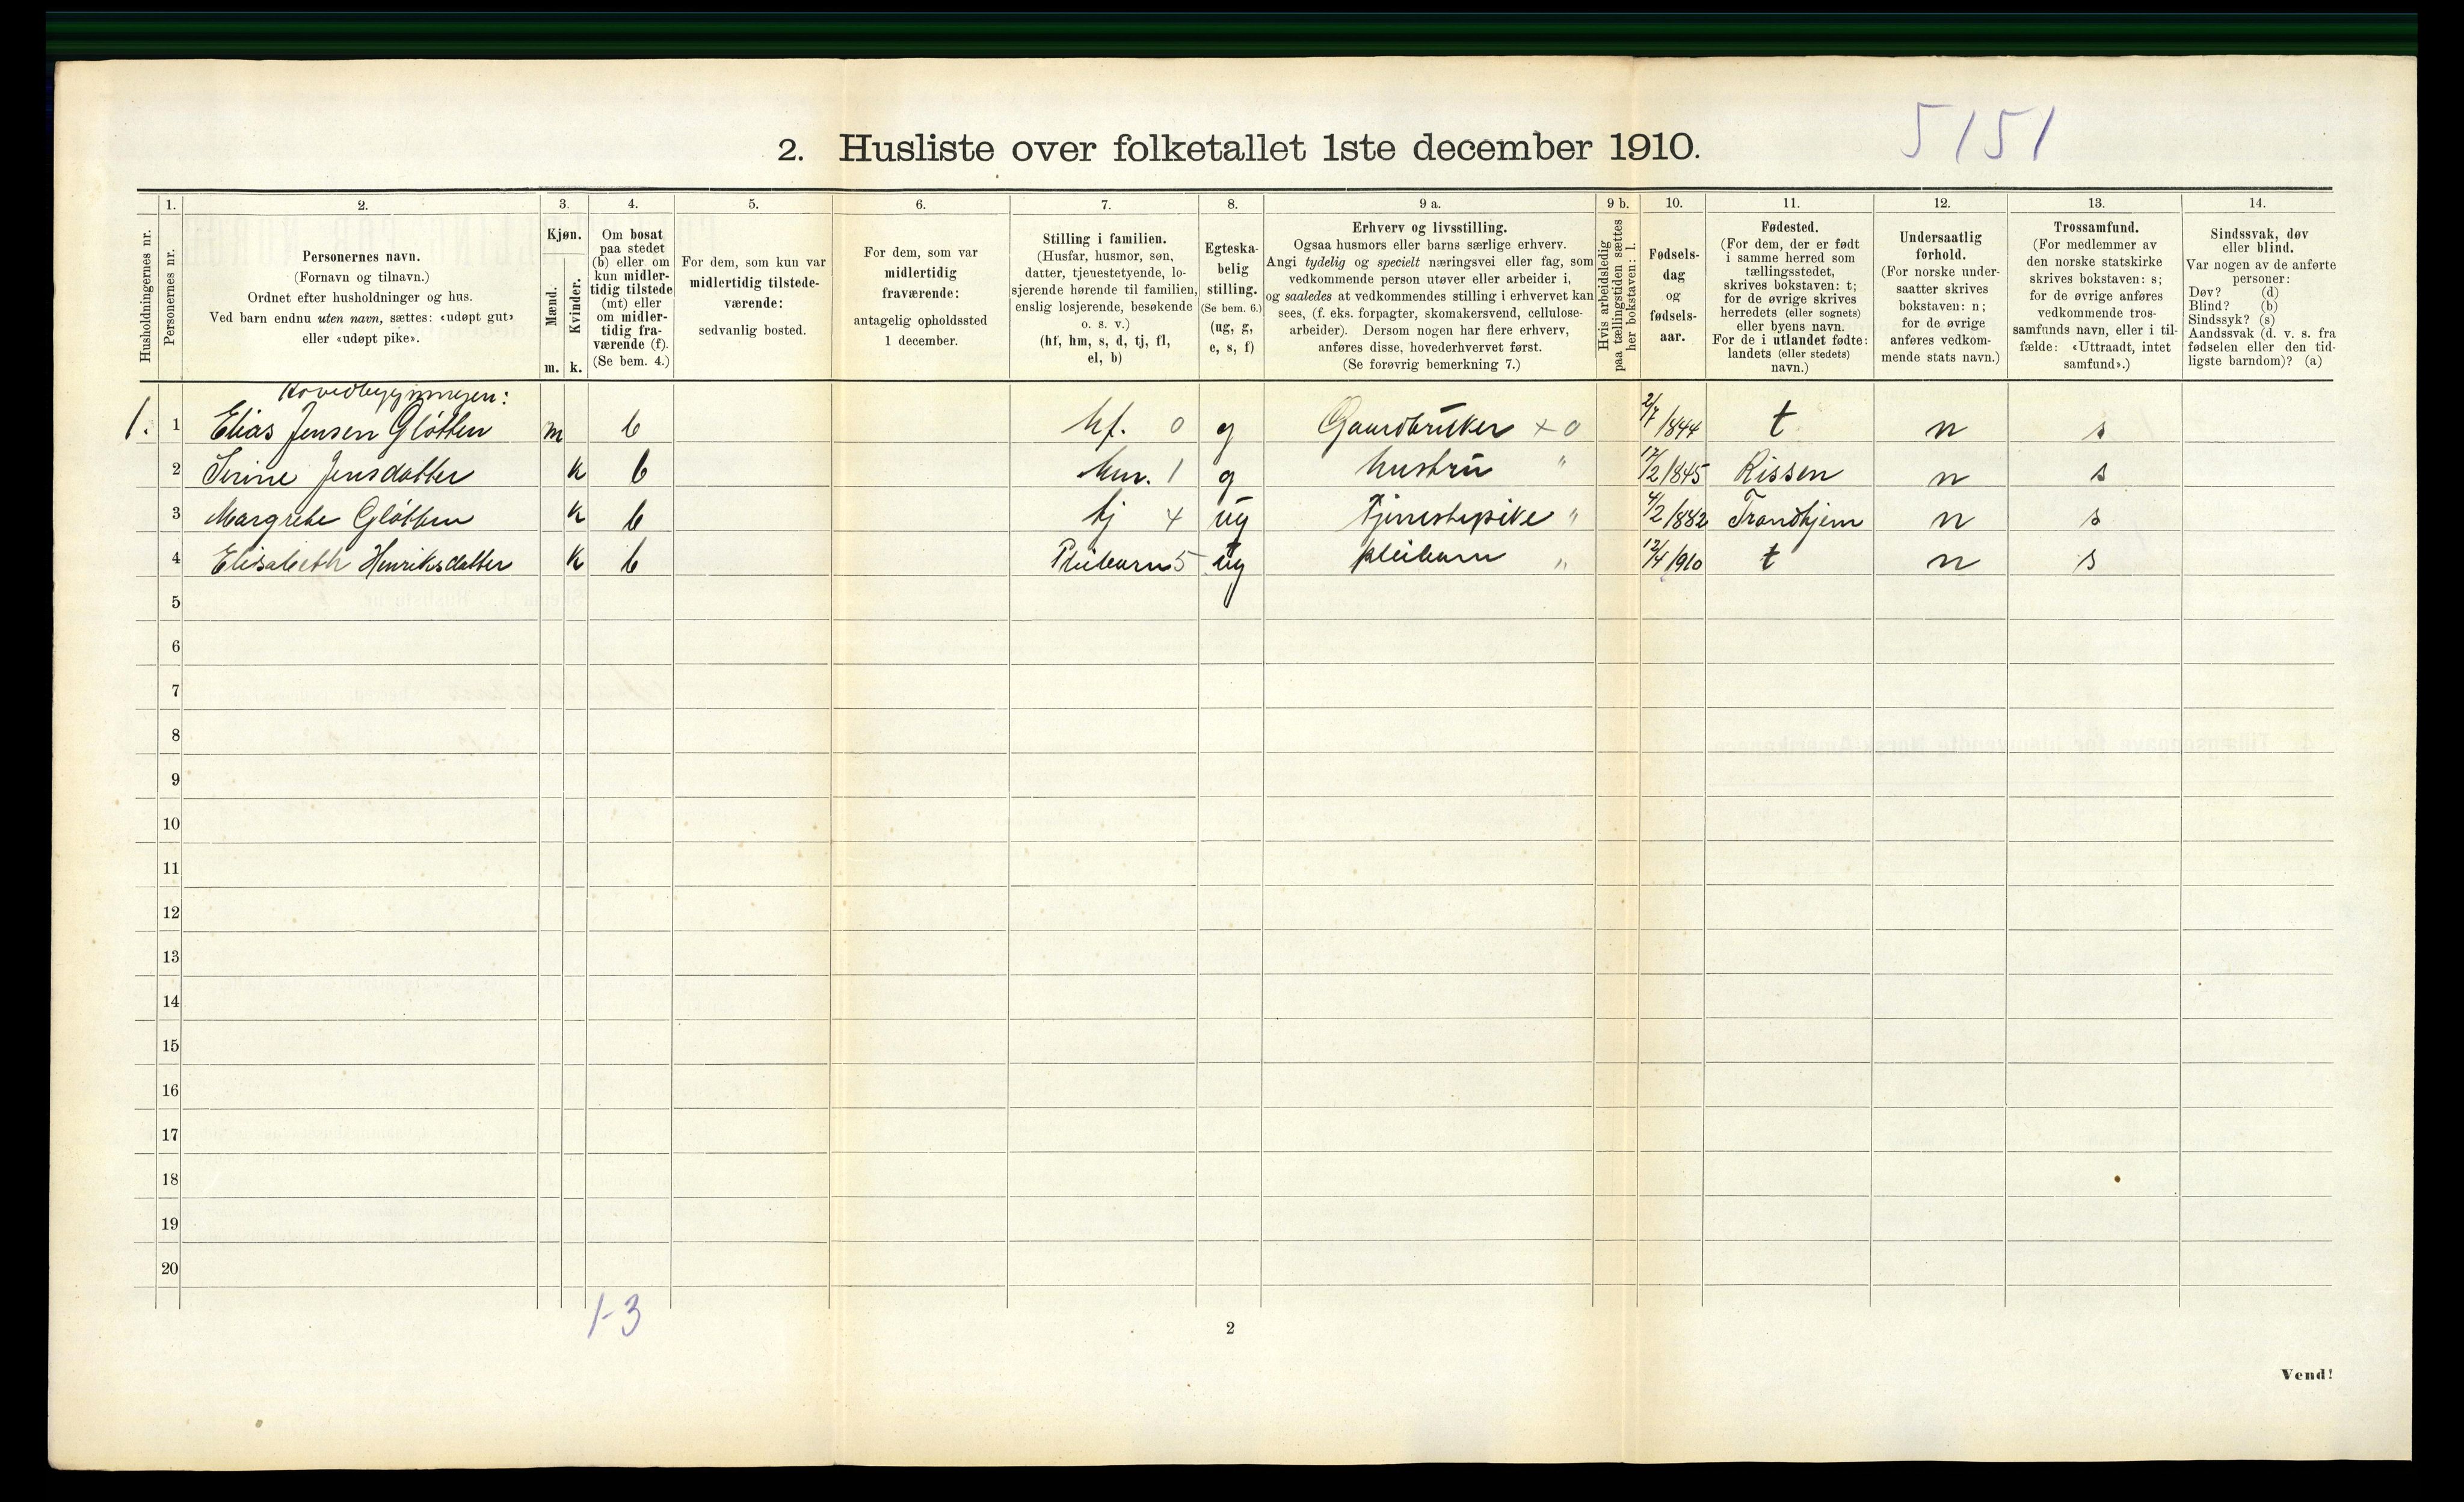 5151
2. Husliste over folketallet 1ste december 1910.
Husholdningernes nr.
1.
Personernes nr.
2.
Personernes navn.
(Fornavn og tilnavn.)
Ordnet efter husholdninger og hus.
Ved barn endnu uten navn, sættes: «udøpt gut»
eller «udøpt pike».
3.
Kjøn.
Mænd.
Kvinder.
m. k.
4.
Om bosat
paa stedet
(b) eller om
kun midler-
tidig tilstede
(mt) eller
om midler-
tidig fra-
værende (f).
(Se bem. 4.)
5.
For dem, som kun var
midlertidig tilstede-
værende:
sedvanlig bosted.
6.
For dem, som var
midlertidig
fraværende:
antagelig opholdssted
1 december.
7.
Stilling i familien.
(Husfar, husmor, søn,
datter, tjenestetyende, lo-
sjerende hørende til familien,
enslig losjerende, besøkende
o. s. v.)
(hf, hm, s, d, tj, fl,
el, b)
8.
Egteska-
belig
stilling.
(Se bem. 6.)
(ug, g,
e, s, f)
9 a.
Erhverv og livsstilling.
Ogsaa husmors eller barns særlige erhverv.
Angi tydelig og specielt næringsvei eller fag, som
vedkommende person utøver eller arbeider i,
og saaledes at vedkommendes stilling i erhvervet kan
sees, (f. eks. forpagter, skomakersvend, cellulose-
arbeider). Dersom nogen har flere erhverv,
anføres disse, hovederhvervet først.
(Se forøvrig bemerkning 7.)
9 b.
Hvis arbeidsledig
paa tællingstiden sættes
her bokstaven: l.
10.
Fødsels-
dag
og
fødsels-
aar.
11.
Fødested.
(For dem, der er født
i samme herred som
tællingsstedet,
skrives bokstaven: t;
for de øvrige skrives
herredets (eller sognets)
eller byens navn.
For de i utlandet fødte:
landets (eller stedets)
navn.)
12.
Undersaatlig
forhold.
(For norske under-
saatter skrives
bokstaven: n;
for de øvrige
anføres vedkom-
mende stats navn.)
13.
Trossamfund.
(For medlemmer av
den norske statskirke
skrives bokstaven: s;
for de øvrige anføres
vedkommende tros-
samfunds navn, eller i til-
fælde: «Uttraadt, intet
samfund».)
14.
Sindssvak, døv
eller blind.
Var nogen av de anførte
personer:
Døv? (d)
Blind? (b)
Sindssyk? (s)
Aandssvak (d. v. s. fra
fødselen eller den tid-
ligste barndom)? (a)
Hovedbygningen:
1. 1 Elias Jensen Gløtten m b hf. 0 g Gaardbruker x 0 2/7 1844 t n s
2 Serine Jensdatter k b hm. 1 g hustru " 17/2 1845 Rissen n s
3 Margrete Gløtten k b tj 4 ug Tjenestepike " 4/2 1882 Trondhjem n s
4 Elisabeth Henriksdatter k b Pleibarn 5 ug pleibarn " 12/4 1910 t n s
5
6
7
8
9
10
11
12
13
14
15
16
17
18
19
20
1-3
2
Vend!